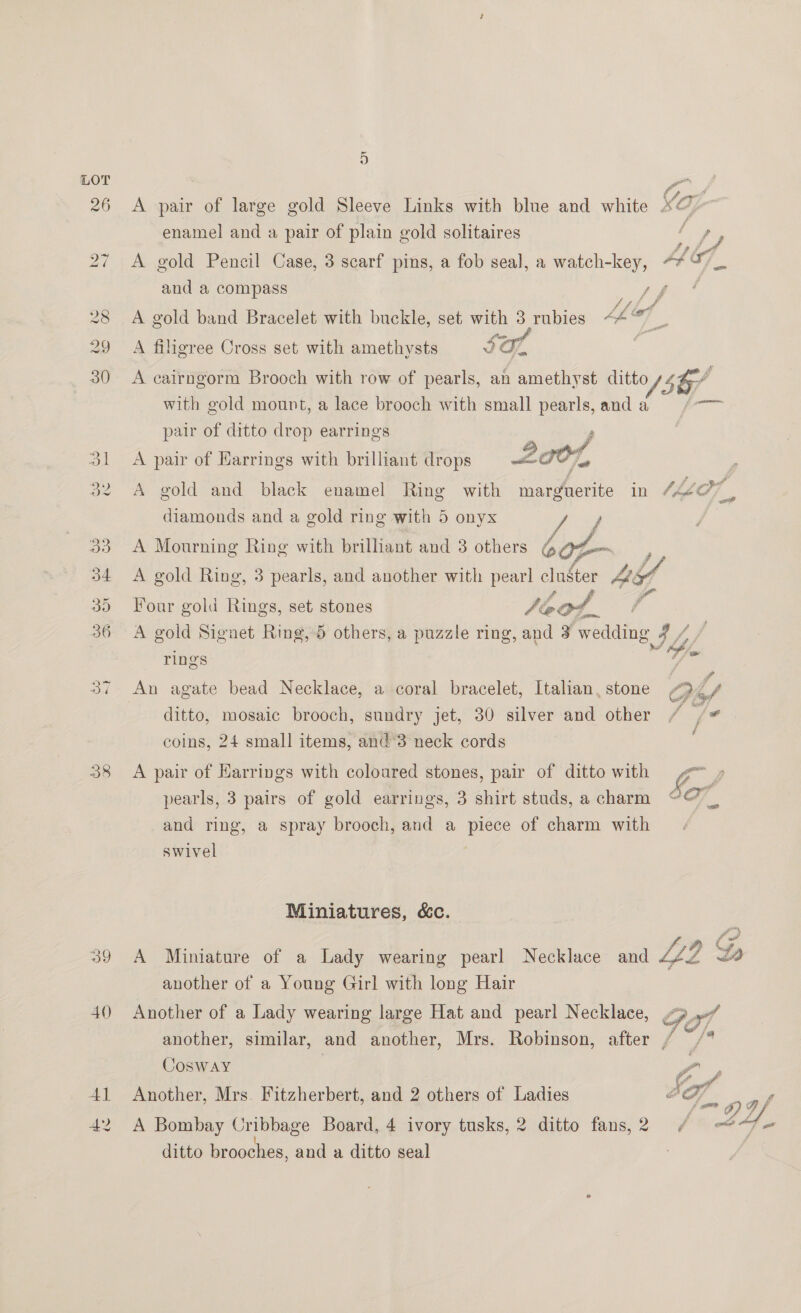 5
LOT
26 A pair of large gold Sleeve Links with blue and white
enamel and a pair of plain gold solitaires
27 A gold Pencil Case, 3 scarf pins, a fob seal, a watch-key,
and a compass
28 A gold band Bracelet with buckle, set with 3 rubies
29 A filigree Cross set with amethysts
30 A cairngorm Brooch with row of pearls, an amethyst ditto
with gold mount, a lace brooch with small pearls, and a
pair of ditto drop earrings
31 A pair of Earrings with brilliant drops
32 A gold and black enamel Ring with marguerite in
diamonds and a gold ring with 5 onyx
33 A Mourning Ring with brilliant and 3 others
34 A gold Ring, 3 pearls, and another with pearl cluster
35 Four gold Rings, set stones
36 A gold Signet Ring, 5 others, a puzzle ring, and 3 wedding
rings
37 An agate bead Necklace, a coral bracelet, Italian stone
ditto, mosaic brooch, sundry jet, 30 silver and other
coins, 24 small items, and 3 neck cords
38 A pair of Earrings with coloured stones, pair of ditto with
pearls, 3 pairs of gold earrings, 3 shirt studs, a charm
and ring, a spray brooch, and a piece of charm with
swivel
Miniatures, &c.
39 A Miniature of a Lady wearing pearl Necklace and
another of a Young Girl with long Hair
40 Another of a Lady wearing large Hat and pearl Necklace,
another, similar, and another, Mrs. Robinson, after
Cosway
41 Another, Mrs. Fitzherbert, and 2 others of Ladies
42 A Bombay Cribbage Board, 4 ivory tusks, 2 ditto fans, 2
ditto brooches, and a ditto seal